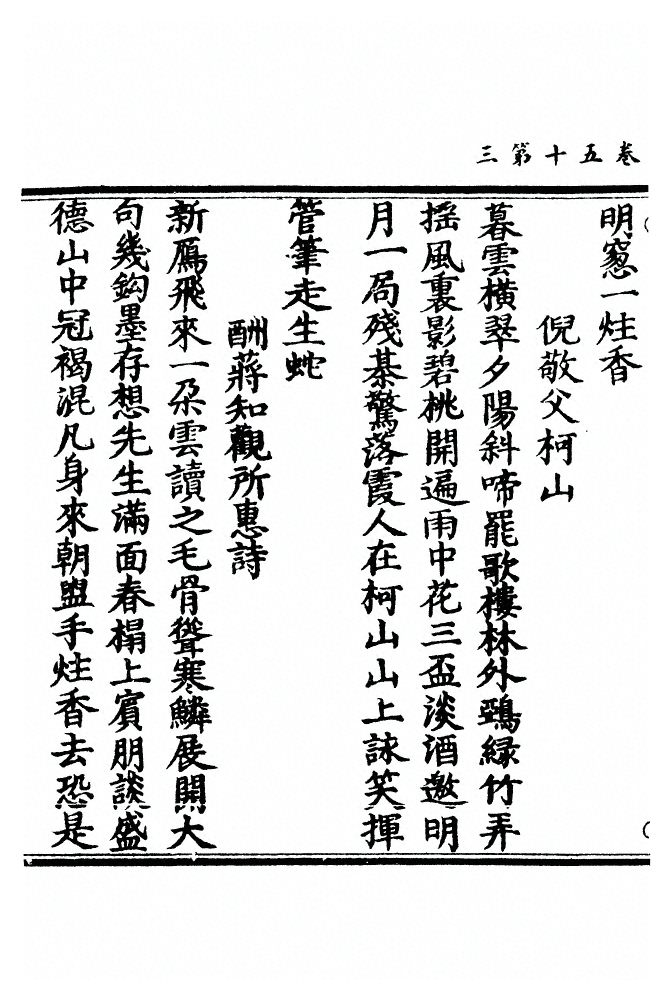 卷五十第三
明窻一炷香
倪敬父柯山
暮雲橫翠夕陽斜啼罷歌樓林外鵶緑竹弄
揺風裏影碧桃開遍雨中花三盃淡酒邀明
月一局殘棊驚落霞人在柯山山上詠笑揮
管筆走生蛇
酬蔣知觀所惠詩
新鴈飛來一朶雲讀之毛骨聳寒鱗展開大
句幾鈎墨存想先生滿面春榻上賓朋談盛
德山中冠褐混凡身來朝盥手炷香去恐是